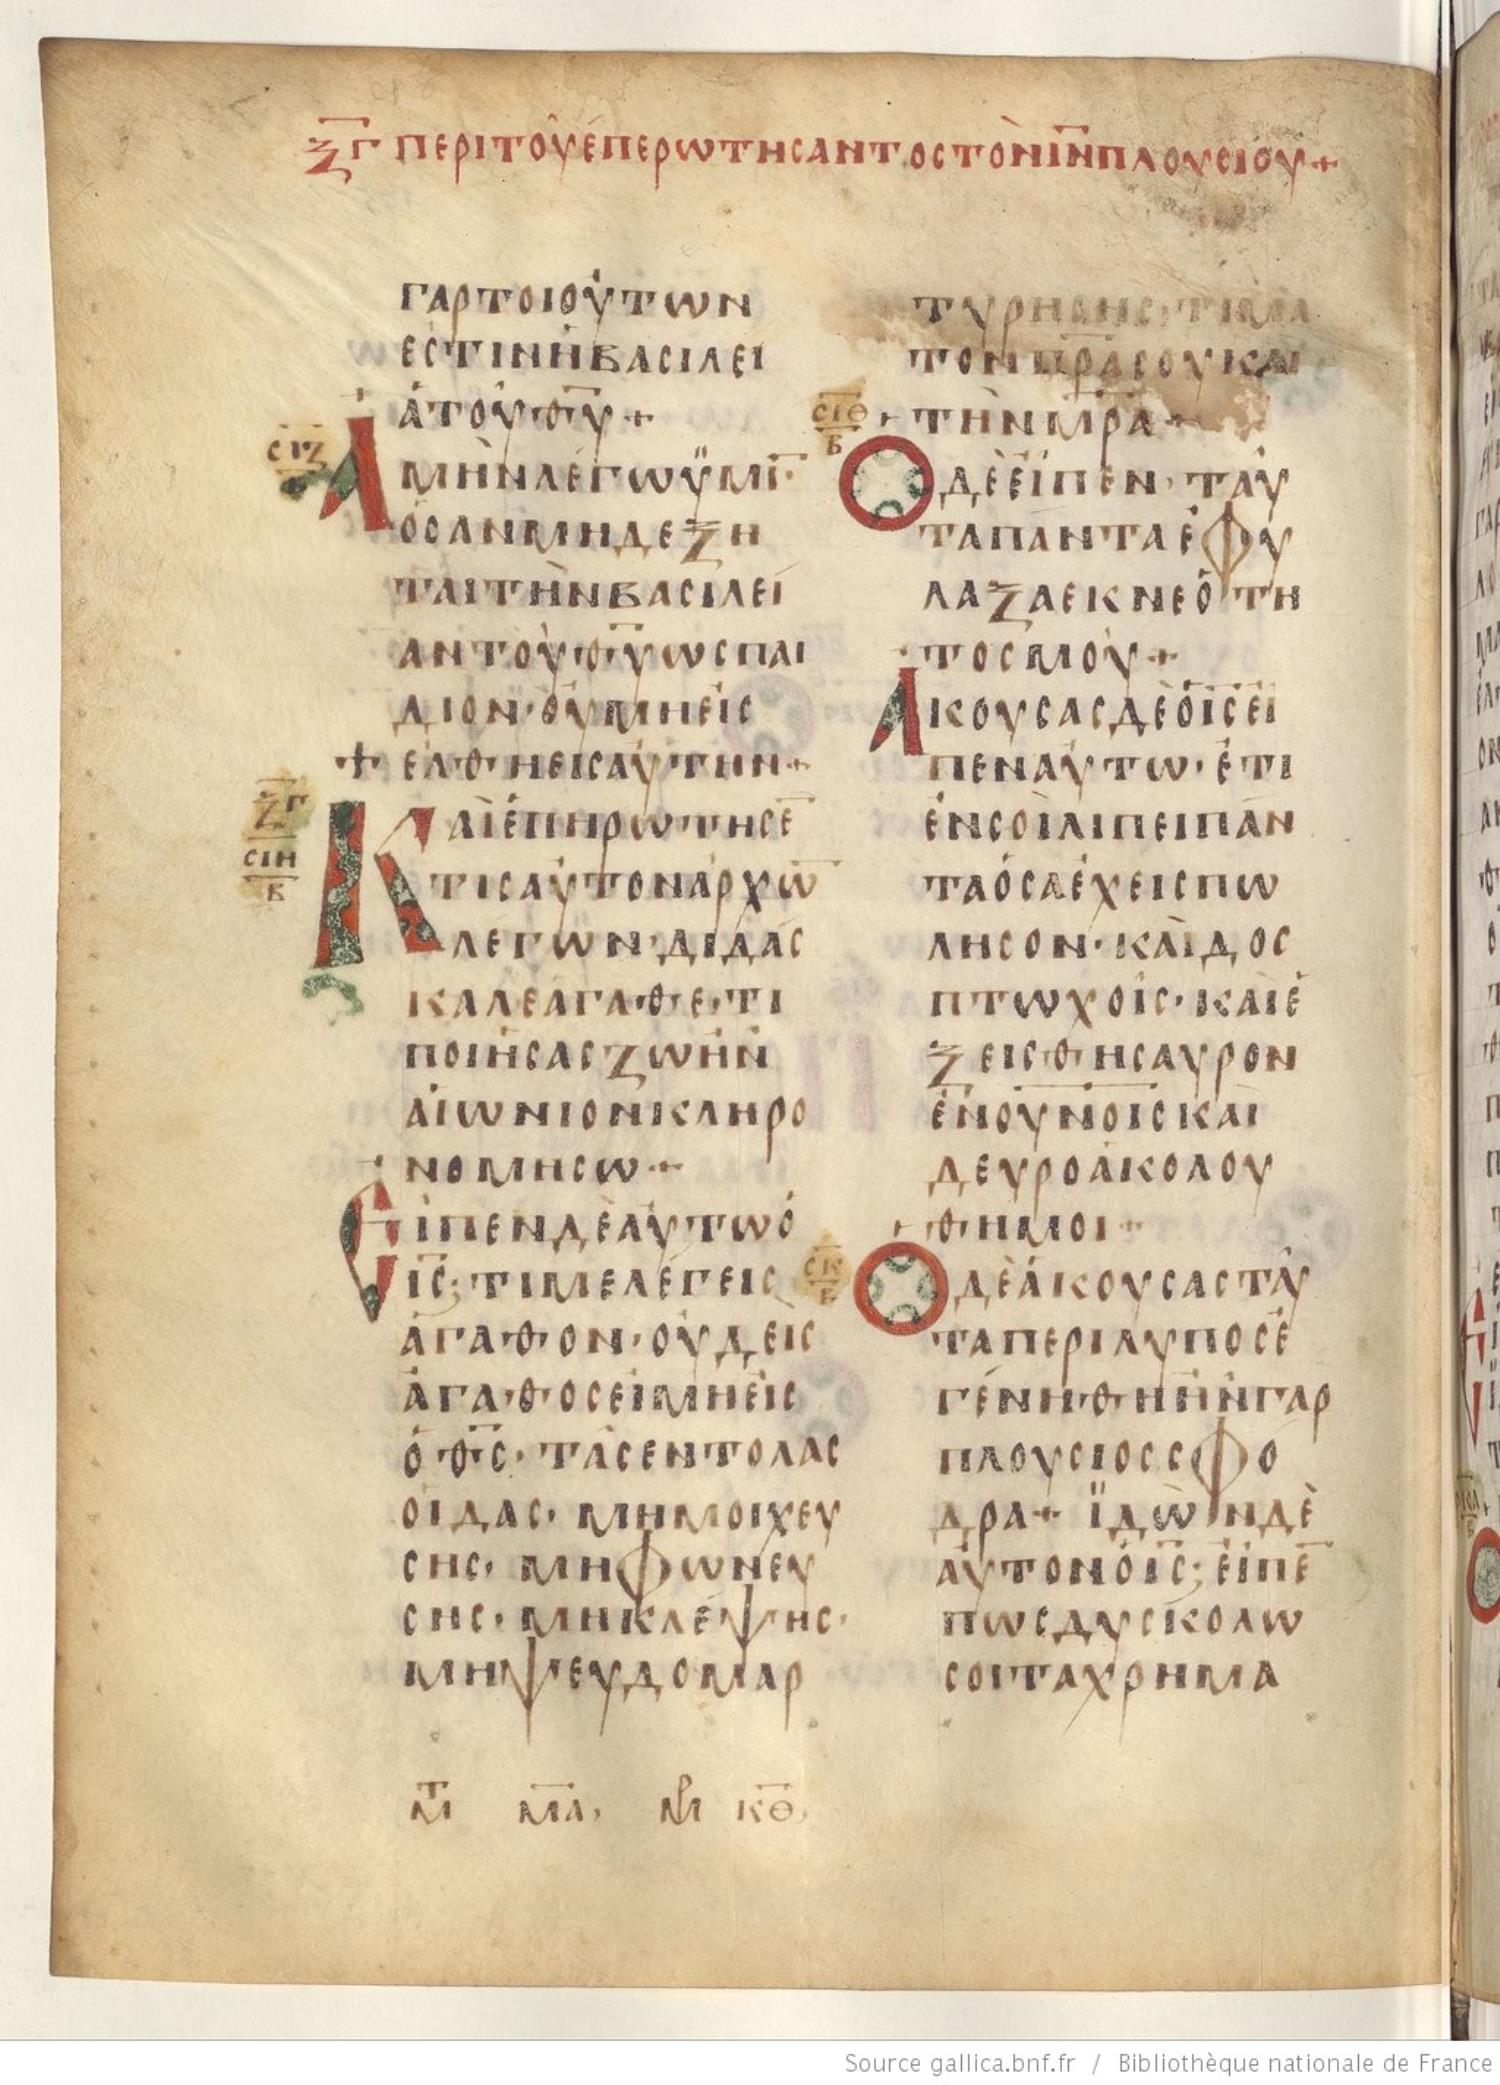 ΞΓ ΠΕΡΙ ΤΟΥ ΕΠΕΡΩΤΗСΑΝΤΟС ΤΟΝ ΙΝ ΠΛΟΥСΙΟΥ+
ΓΑΡ ΤΟΙΟΥΤΩΝ
ΕСΤΙΝ Η ΒΑСΙΛΕΙ
Α ΤΟΥ ΘΥ+
СΙΖ
ΑΜΗΝ ΛΕΓΩ ΫΜΙ·
ΟС ΑΝ ΜΗ ΔΕΞΗ
ΤΑΙ ΤΗΝ ΒΑСΙΛΕΙ
ΑΝ ΤΟΥ ΘΥ ΩС ΠΑΙ
ΔΙΟΝ· ΟΥ ΜΗ ΕΙС
+ ΕΛΘΗ ΕΙС ΑΥΤΗΝ+
ΞΓ
СΙΗ
Β
ΚΑΙ ΕΠΗΡΩΤΗСΕ
ΤΙС ΑΥΤΟΝ ΑΡΧΩ
ΛΕΓΩΝ· ΔΙΔΑС
ΚΑΛΕ ΑΓΑΘΕ· ΤΙ
ΠΟΙΗСΑС ΖΩΗΝ
ΑΙΩΝΙΟΝ ΚΛΗΡΟ
ΝΟΜΗСΩ+
ΕΙΠΕΝ ΔΕ ΑΥΤΩ Ο
ΙС; ΤΙ ΜΕ ΛΕΓΕΙС
ΑΓΑΘΟΝ· ΟΥΔΕΙС
ΑΓΑΘΟС ΕΙ ΜΗ ΕΙС
Ο ΘС· ΤΑС ΕΝΤΟΛΑС
ΟΙΔΑС· ΜΗ ΜΟΙΧΕΥ
СΗС· ΜΗ ΦΩΝΕΥ
СΗС· ΜΗ ΚΛΕΨΗС·
ΜΗ ΨΕΥΔΟΜΑΡ
ΤΥΡΗСΗС· ΤΙΜΑ
ΤΟΝ ΠΡΑ СΟΥ ΚΑΙ
ΤΗΝ ΜΡΑ+
СΙΘ
Β
Ο ΔΕ ΕΙΠΕΝ· ΤΑΥ
ΤΑ ΠΑΝΤΑ ΕΦΥ
ΛΑΞΑ ΕΚ ΝΕΟΤΗ
ΤΟС ΜΟΥ+
ΑΚΟΥСΑС ΔΕ Ο ΙС ΕΙ
ΠΕΝ ΑΥΤΩ· ΕΤΙ
ΕΝ СΟΙ ΛΙΠΕΙ ΠΑΝ
ΤΑ ΟСΑ ΕΧΕΙС ΠΩ
ΛΗСΟΝ· ΚΑΙ ΔΟС
ΠΤΩΧΟΙС· ΚΑΙ Ε
ΞΕΙС ΘΗСΑΥΡΟΝ
ΕΝ ΟΥΝΟΙС ΚΑΙ
ΔΕΥΡΟ ΑΚΟΛΟΥ
ΘΗ ΜΟΙ+
СΚ
Β
Ο ΔΕ ΑΚΟΥСΑС ΤΑΥ
ΤΑ ΠΕΡΙΛΥΠΟС Ε
ΓΕΝΗΘΗ ΗΝ ΓΑΡ
ΠΛΟΥСΙΟС СΦΟ
ΔΡΑ+ ΪΔΩΝ ΔΕ
ΑΥΤΟΝ Ο ΙС; ΕΙΠΕ
ΠΩС ΔΥСΚΟΛΩ
СΟΙ ΤΑ ΧΡΗΜΑ
ΜΤ ΜΑ, ΚΘ,
Source gallica.bnf.fr / Bibliothèque nationale de France